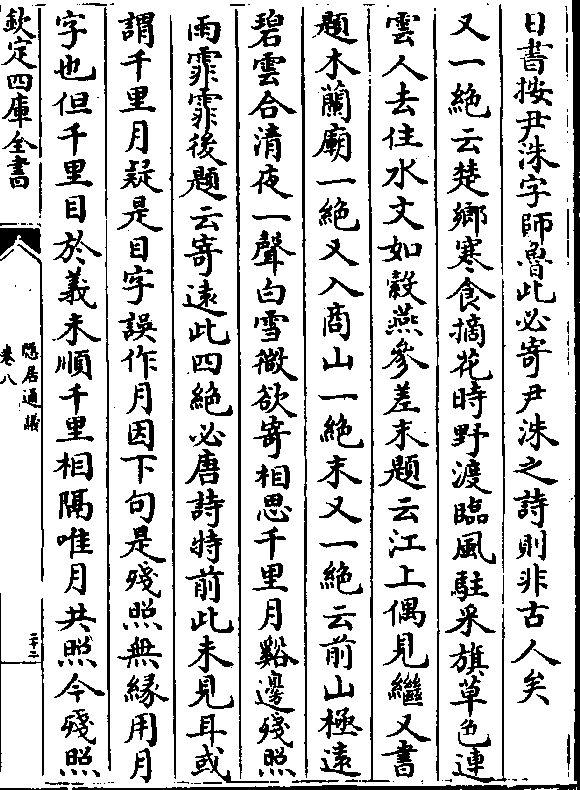 日書按尹洙字師魯此必寄尹洙之詩則非古人矣
又一絶云楚鄉寒食摘花時野渡臨風駐采旗草色連
雲人去住水文如縠燕參差末題云江上偶見繼又書
題木蘭廟一絶又入商山一絶末又一絶云前山極遠
碧雲合清夜一聲白雪微欲寄相思千里月谿邊殘照
雨霏霏後題云寄遠此四絶必唐詩特前此未見耳或
謂千里月疑是目字誤作月因下句是殘照無縁用月
字也但千里目於義未順千里相隔唯月共照今殘照
欽定四庫全書
隠居通議
卷八
二十二